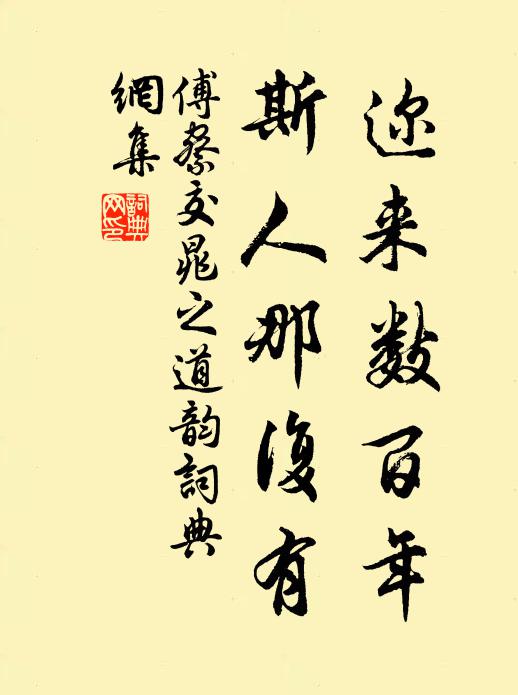 迩来数百年
斯人那復有
傅察交晁之道韵詞典
網集
詞典
网印